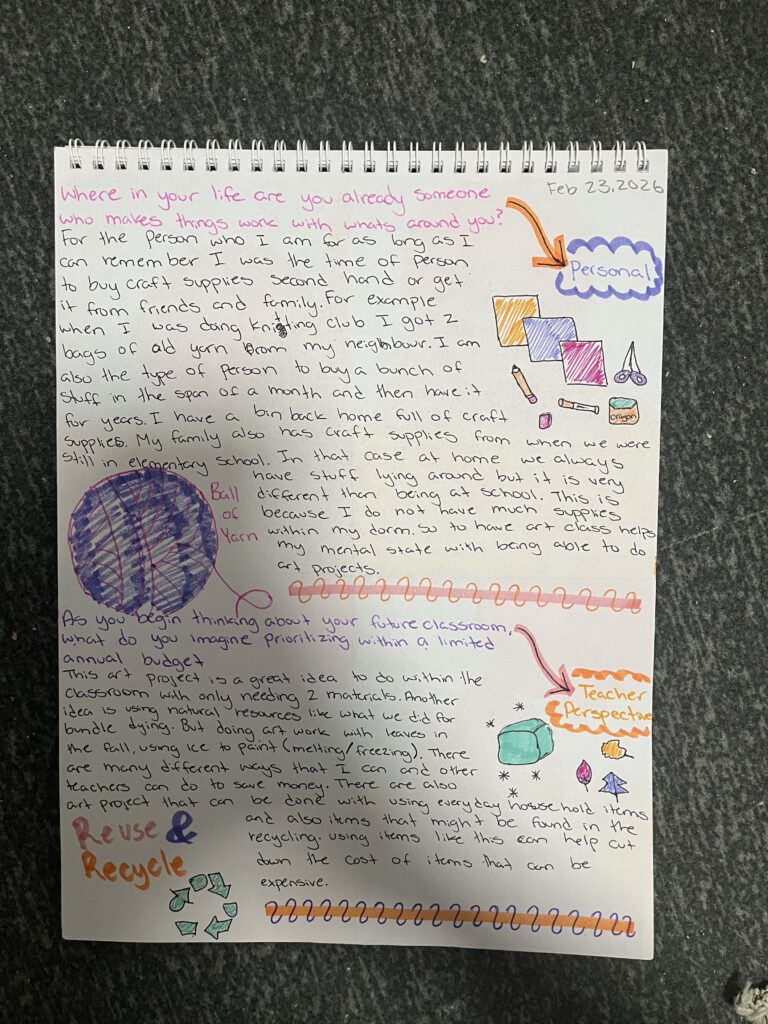 Feb 23, 2026
Where in your life are you already someone
who makes things work with whats around you?
Personal
For the Person who I am for as long as I
can remember I was the time of Person
to buy craft supplies second hand or get
it from friends and family. For example
when I was doing knitting club I got 2
bags of old yarn from my neighbour. I am
also the type of Person to buy a bunch of
stuff in the span of a month and then have it
for years. I have a bin back home full of craft
supplies. My family also has craft supplies from when we were
still in elementary school. In that case at home we always
have stuff lying around but it is very
different than being at school. This is
because I do not have much supplies
within my dorm. So to have art class helps
my mental state with being able to do
art projects.
crayon
Ball
of
Yarn
As you begin thinking about your future classroom,
what do you imagine Prioritizing within a limited
annual budget
Teacher
Perspective
This art project is a great idea to do within the
classroom with only needing 2 materials. Another
idea is using natural resources like what we did for
bundle dying. But doing art work with leaves in
the fall, using Ice to paint (melting/freezing). There
are many different ways that I can and other
teachers can do to save money. There are also
art project that can be done with using everyday household items
and also items that might be found in the
recycling. Using items like this can help cut
down the cost of items that can be
expensive.
Reuse &
Recycle